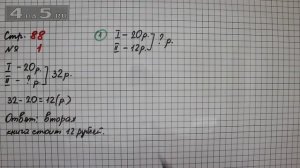 4 до 5.
Стр. 88
№ 1
I – 20р.
II – ? р.
] 32р.
32 – 20 = 12 (р.)
Ответ: вторая
книга стоит 12 рублей.
① I – 20р.
II – 12р.
] ? р.